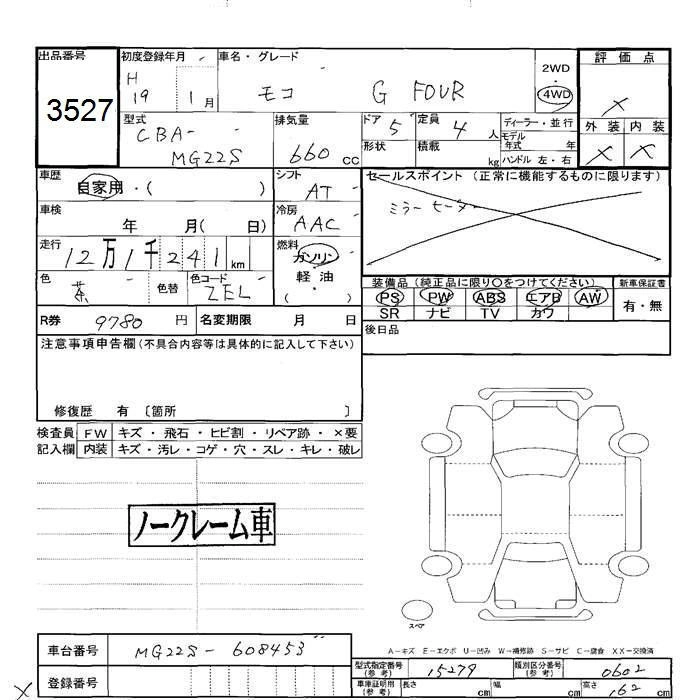 出品番号
3527
初度登録年月
H
19 1月
車名・グレード
モコ G FOUR
2WD
・
4WD
評価点
×
外装 内装
× ×
型式
CBA-
MG22S
排気量
660 cc
ドア 5
形状
定員 4 人
積載 kg
ディーラー・並行
モデル年式 年
ハンドル 左・右
車歴
自家用・( )
シフト
AT
セールスポイント (正常に機能するものに限ります)
ミラーヒーター
車検
年 月( 日)
冷房
AAC
走行
12万1千241km
燃料
ガソリン
軽・油
( )
色
茶
色替
色コード
ZEL
装備品 (純正品に限り○をつけてください)
PS PW ABS エアB AW
SR ナビ TV カワ
新車保証書
有・無
R券 9780 円
名変期限 月 日
後日品
注意事項申告欄 (不具合内容等は具体的に記入して下さい)
修復歴 有 〔箇所 〕
検査員 FW キズ・飛石・ヒビ割・リペア跡・×要
記入欄 内装 キズ・汚レ・コゲ・穴・スレ・キレ・破レ
ノークレーム車
スペア
A-キズ E-エクボ U-凹み W-補修跡 S-サビ C-腐食 XX-交換済
車台番号 MG22S-608453
型式指定番号 (参考) 15279
類別区分番号 (参考) 0602
登録番号
車庫証明用 (参考) 長さ cm 幅 cm 高さ 162 cm
×